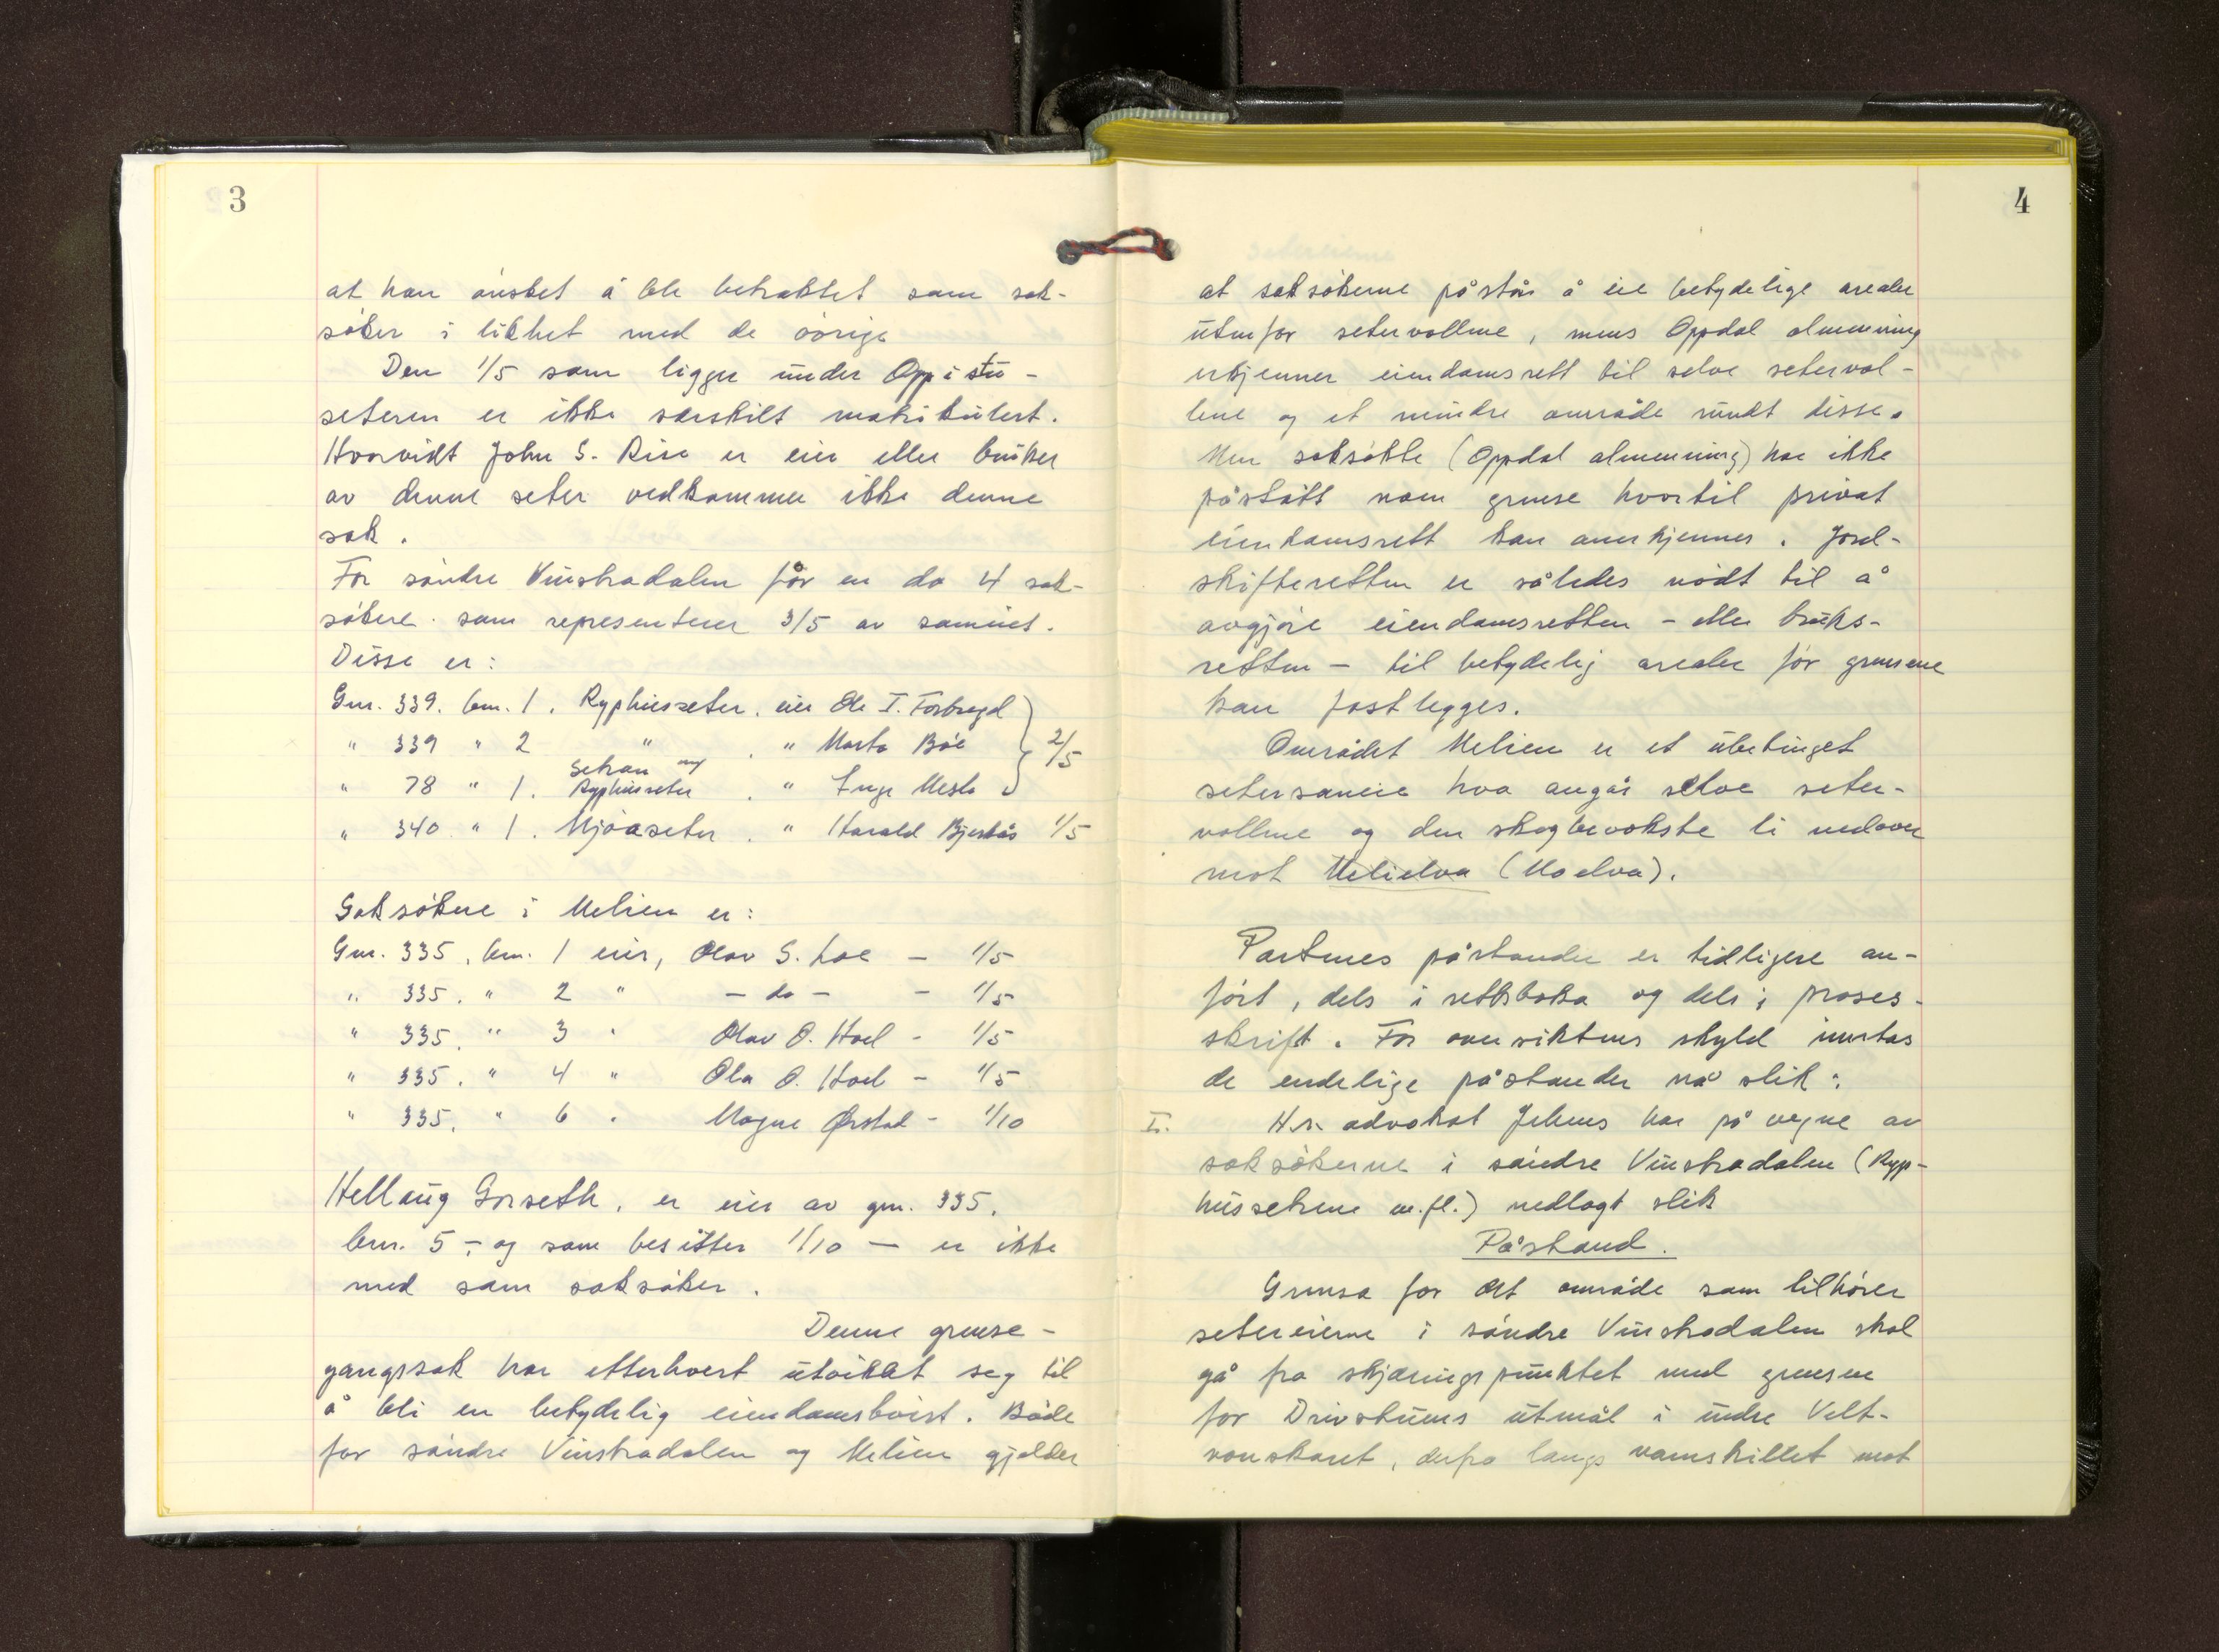 3
at han ønsket å ble betraktet som sak-
søker i likhet med de øvrige
Den 1/5 som ligger under Oppistu-
seteren er ikke særskilt matrikulert.
Hvorvidt John S. Rise er eier eller bruker
av denne seter vedkommer ikke denne
sak.
For søndre Vinstradalen får en da 4 sak-
søkere som representerer 3/5 av sameiet.
Disse er:
Gnr. 339. bnr. 1. Ryphusseter. eier Ole I. Forbregd
" 339 " 2 " . " Marta Bøe 2/5
" 78 " 1. Setran av Ryphusseter . " Inge Mesla
" 340. " 1. Mjøaseter . " Harald Bjerkås 1/5
Saksøkere i Melien er:
Gnr. 335, bnr. 1 eier, Olav S. Loe - 1/5
" 335. " 2 " - do - - 1/5
" 335. " 3 " Olav O. Hoel - 1/5
" 335. " 4 " Ola O. Hoel - 1/5
" 335. " 6 " Magne Ørstad - 1/10
Hellaug Gorseth, er eier av gnr. 335,
bnr. 5 - og som besitter 1/10 - er ikke
med som saksøker.
Denne grense-
gangssak har etterhvert utviklet seg til
å bli en betydelig eiendomstvist. Både
for søndre Vinstradalen og Melien gjelder
4
at saksøkerne påstår å eie betydelige arealer
utenfor setervollene, mens Oppdal almenning
erkjenner eiendomsrett til selve setervol-
lene og et mindre område rundt disse.
Men saksøkte (Oppdal almenning) har ikke
påstått noen grense hvortil privat
eiendomsrett kan anerkjennes. Jord-
skifteretten er således nødt til å
avgjøre eiendomsretten - eller bruks-
retten - til betydelig arealer før grensene
kan fastlegges.
Området Melien er et ubetinget
setersameie hva angår selve seter-
vollene og den skogbevokste li nedover
mot Melielva (Moelva).
Partenes påstander er tidligere an-
ført, dels i rettsboka og dels i proses-
skrift. For oversiktens skyld inntas
de endelige påstander nå slik:
I. H.r. advokat Jelums har på vegne av
saksøkerne i søndre Vinstradalen (Ryp-
hussetrene m.fl.) nedlagt slik
Påstand.
Grensa for det område som tilhører
setereierne i søndre Vinstradalen skal
gå fra skjæringspunktet med grensen
for Drivstuens utmål i indre Velt-
vonskaret, derfra langs vannskillet mot